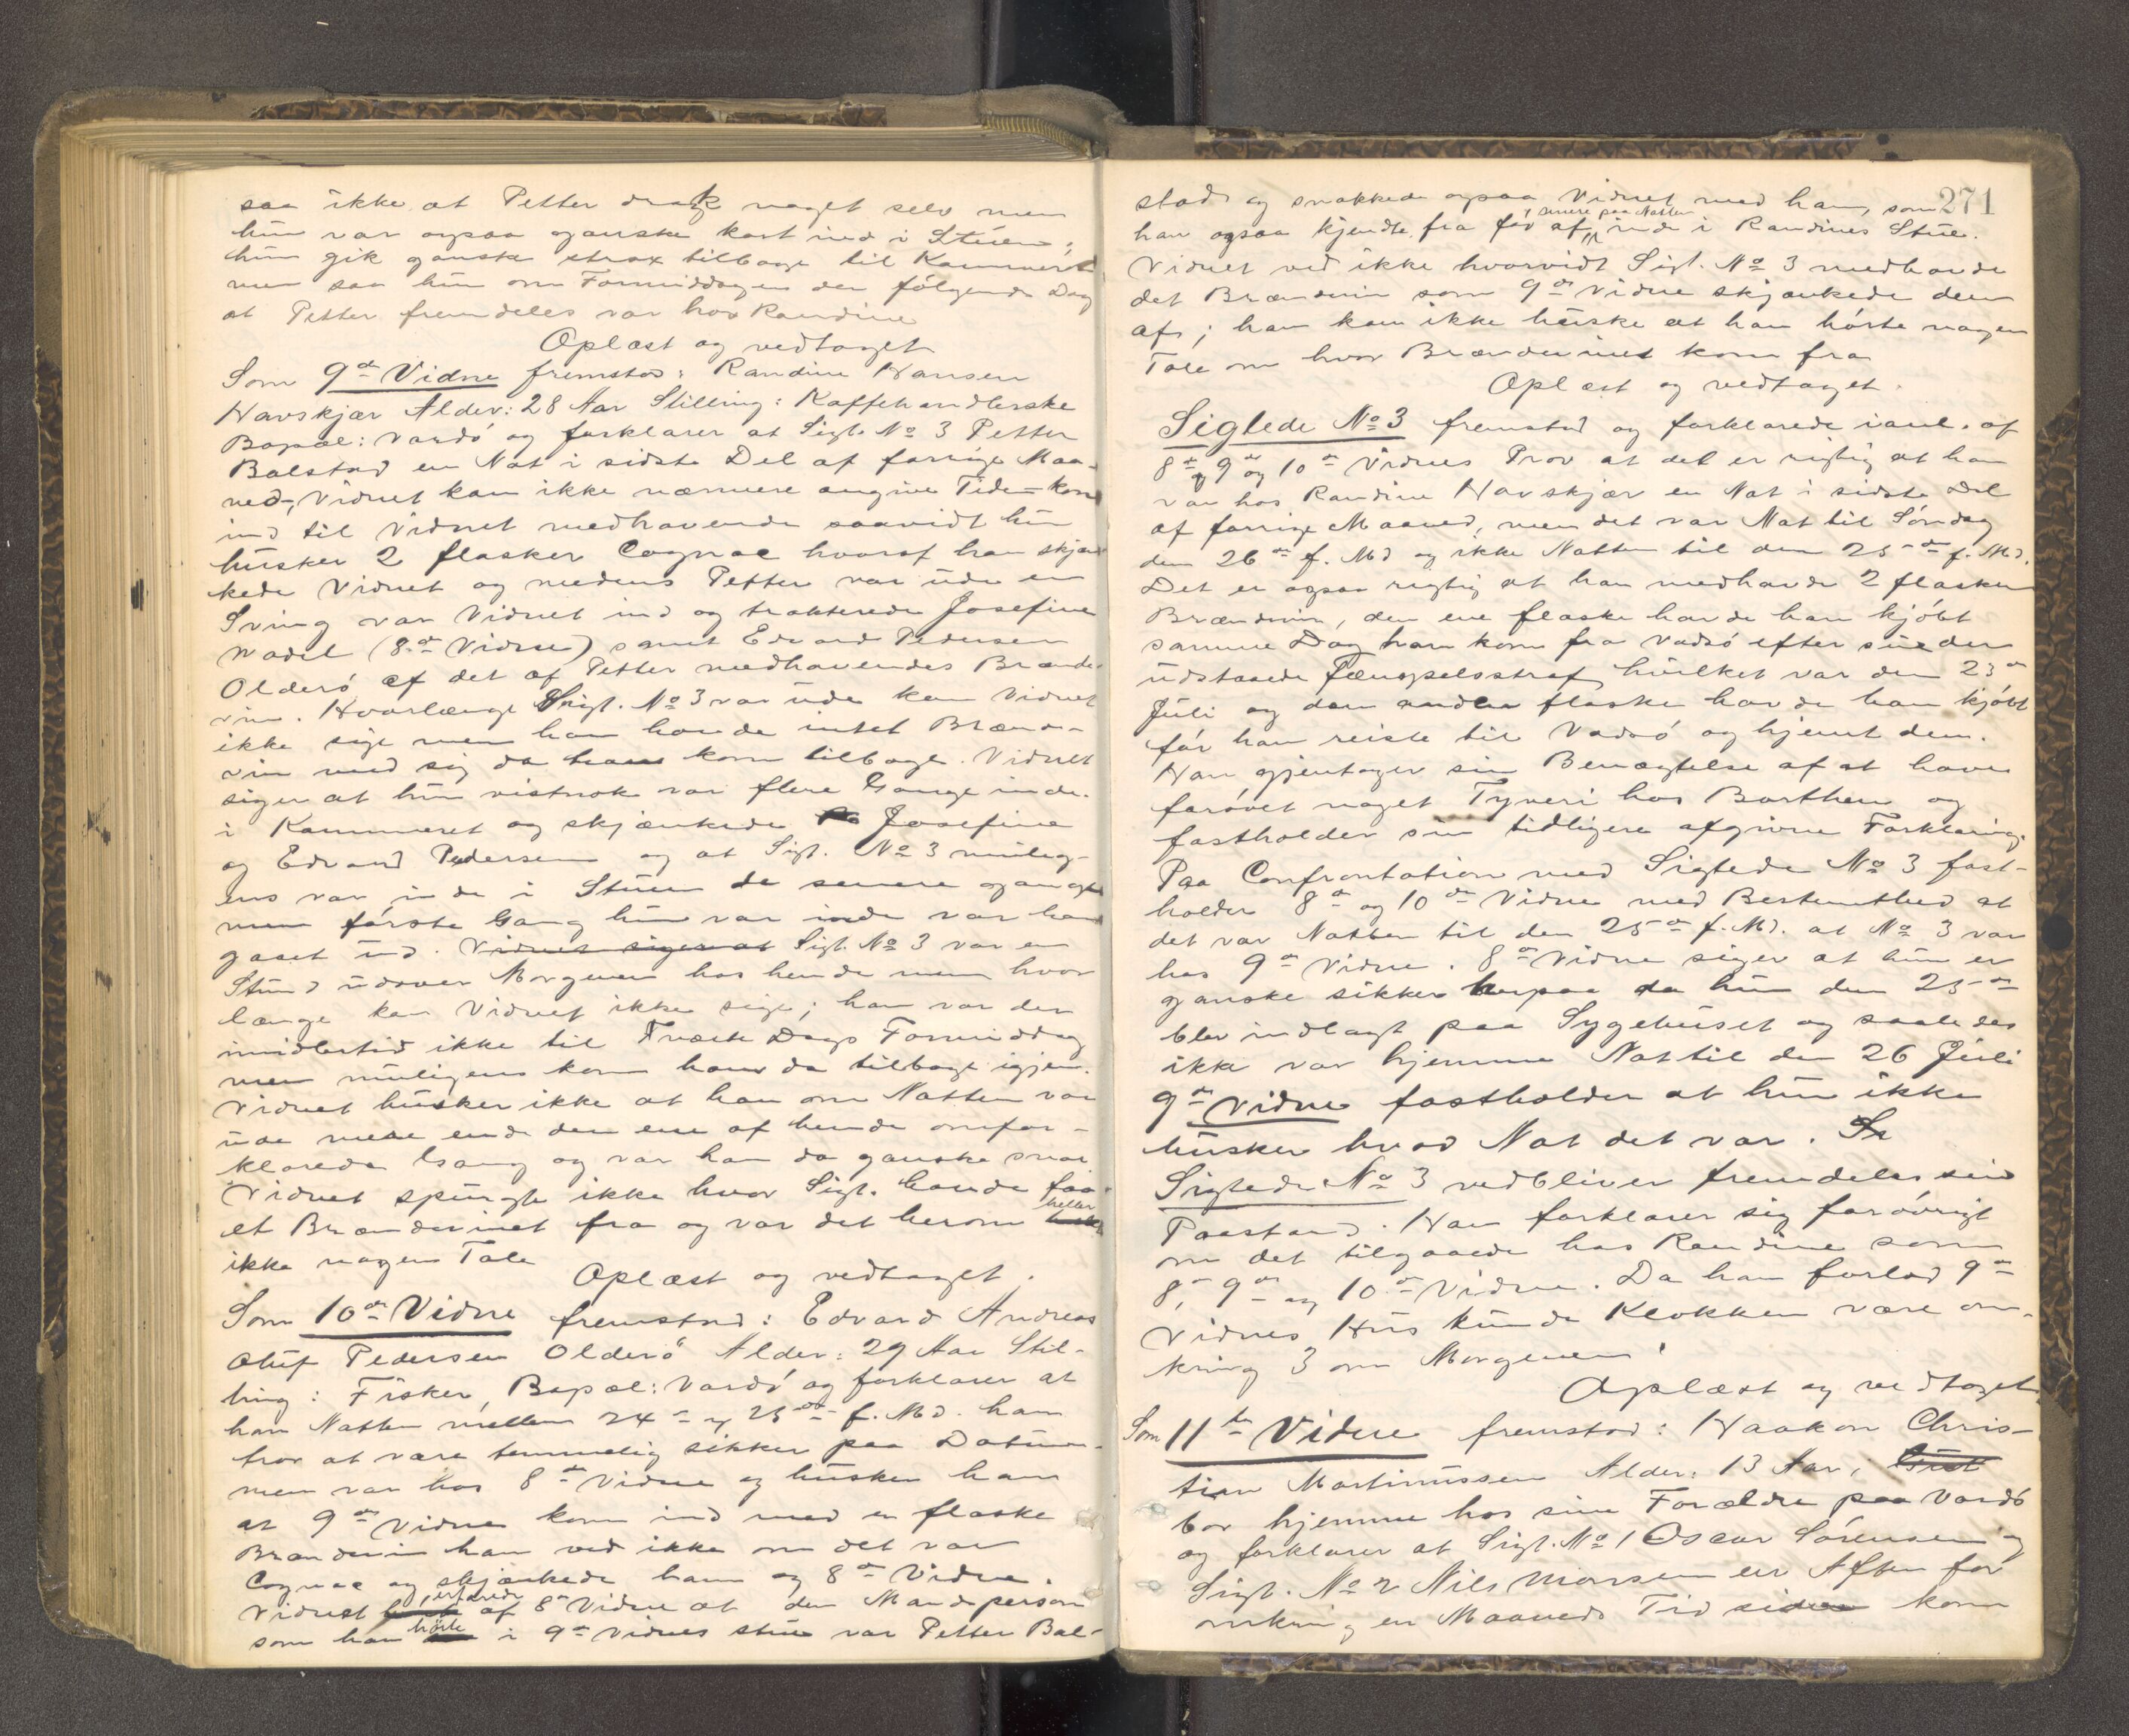 saa ikke at Petter drak noget selv men
hun var ogsaa ganske kort ind i Stuen;
hun gik ganske strax tilbage til Kammeret
men saa hun om Formiddagen den følgende Dag
at Petter fremdeles var hos Randine
Oplæst og vedtaget
Som 9de Vidne fremstod: Randine Hansen
Havskjær Alder: 28 Aar Stilling: Kaffehandlerske
Bopæl: Vardø og forklarer at Sigt. No 3 Petter
Balstad en Nat i sidste Del af forrige Maa-
ned, Vidnet kan ikke nærmere angive Tiden kom
ind til Vidnet medhavende saavidt hun
husker 2 flasker Cognac hvoraf han skjæn-
kede Vidnet og medens Petter var ude en
Sving var Vidnet ind og trakterede Josefine
Wadel (8de Vidne) samt Edvard Pedersen
Olderø af det af Petter medhavendes Brænde-
vin. Hvorlænge Sigt. No 3 var ude kan Vidnet
ikke sige men han havde intet Brænde-
vin med sig da han kom tilbage. Vidnet
siger at hun vistnok var flere Gange inde
i Kammeret og skjænkede Josefine
og Edvard Pedersen og at Sigt. No 3 mulig-
ens var inde i Stuen de senere gange
men første Gang hun var inde var han
gaaet ud. Vidnet siger at Sigt. No 3 var en
Stund udover Morgenen hos hende men hvor
længe kan Vidnet ikke sige; han var der
imidlertid ikke til Næste Dags Formiddag
men muligens kom han da tilbage igjen.
Vidnet husker ikke at han om Natten var
ude mere end den ene af hende omfor-
klarede Gang og var han da ganske snar
Vidnet spurgte ikke hvor Sigt. havde faa-
et Brændevinet fra og var det herom heller
ikke nogen Tale
Oplæst og vedtaget.
Som 10de Vidne fremstod: Edvard Andreas
Oluf Pedersen Olderö Alder: 29 Aar Stil-
ling: Fisker, Bopæl: Vardø og forklarer at
han Natten mellem 24de og 25de f. Md. han
tror at være temmelig sikker paa Datum-
men var hos 8de Vidne og husker han
at 9de Vidne kom ind med en flaske
Brændevin han ved ikke om det var
Cognac og skjænkede ham og 8de Vidne.
Vidnet erfarede af 8de Vidne at den Mandsperson
som han hørte i 9de Vidnes stue var Petter Bal-
271
stad og snakkede ogsaa Vidnet med ham, som
han ogsaa kjendte fra før af, senere paa Natten inde i Randines Stue.
Vidnet ved ikke hvorvidt Sigt. No 3 medhavde
det Brændevin som 9de Vidne skjænkede dem
af; han kan ikke huske at han hørte nogen
Tale om hvor Brændevinet kom fra
Oplæst og vedtaget.
Sigtede No 3 fremstod og forklarede ianl. af
8de 9de og 10de Vidnes Prov at det er rigtig at han
var hos Randine Havskjær en Nat i sidste Del
af forrige Maaned, men det var Nat til Søndag
den 26de f. Md og ikke Natten til den 25de f. Md.
Det er ogsaa rigtig at han medhavde 2 flasker
Brændevin, den ene flaske havde han kjøbt
samme Dag han kom fra Vadsø efter sin der
udstaaede Fængselsstraf hvilket var den 23de
Juli og den anden flaske havde han kjøbt
før han reiste til Vadsø og hjemt dem.
Han gjentager sin Benægtelse af at have
forøvet noget Tyveri hos Barthen og
fastholder sin tidligere afgivne Forklaring.
Paa Confrontation med Sigtede No 3 fast-
holder 8de og 10de Vidne med Bestemthed at
det var Natten til den 25de f. Md. at No 3 var
hos 9de Vidne. 8de Vidne siger at hun er
ganske sikker herpaa da hun den 25de
blev indlagt paa Sygehuset og saaledes
ikke var hjemme Nat til den 26 Juli
9de Vidne fastholder at hun ikke
husker hvad Nat det var. Se
Sigtede No 3 vedbliver fremdeles sin
Paastand. Han forklarer sig forøvrigt
om det tilgaaede hos Randine som
8, 9de og 10de Vidne. Da han forlod 9de
Vidnes Hus kunde Klokken være om-
kring 3 om Morgenen.
Oplæst og vedtaget
Som 11te Vidne fremstod: Haakon Chris-
tian Martinussen Alder: 13 Aar,
bor hjemme hos sine Forældre paa Vardø
og forklarer at Sigt. No 1 Oscar Sørensen og
Sigt. No 2 Nils Monsen en Aften for
omkring en Maaneds Tid siden kom